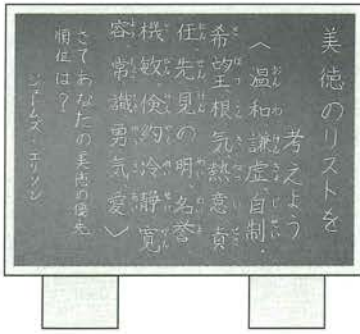 美徳のリストを
考えよう
〈温和謙虚、自制・
希望根気熱意責
任・先見の明、名誉
機敏倹約冷静寛
容、常識勇気愛〉
さてあなたの美徳の優先
順位は？
ジェームズ・エリソン